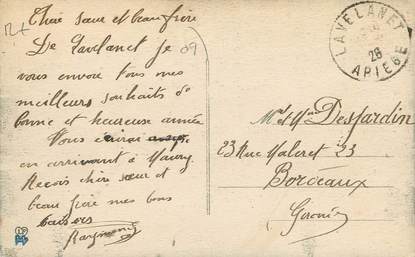 Chère sœur et beau frère
De Lavelanet je
vous envoie tous mes
meilleurs souhaits de
bonne et heureuse année
Vous écrirai
en arrivant à
Reçois chère sœur et
beau frère mes bons
baisers
Raymond
09
LAVELANET
28
ARIEGE
Mr et Mme Desjardin
23 Rue Maleret 23
Bordeaux
Gironde